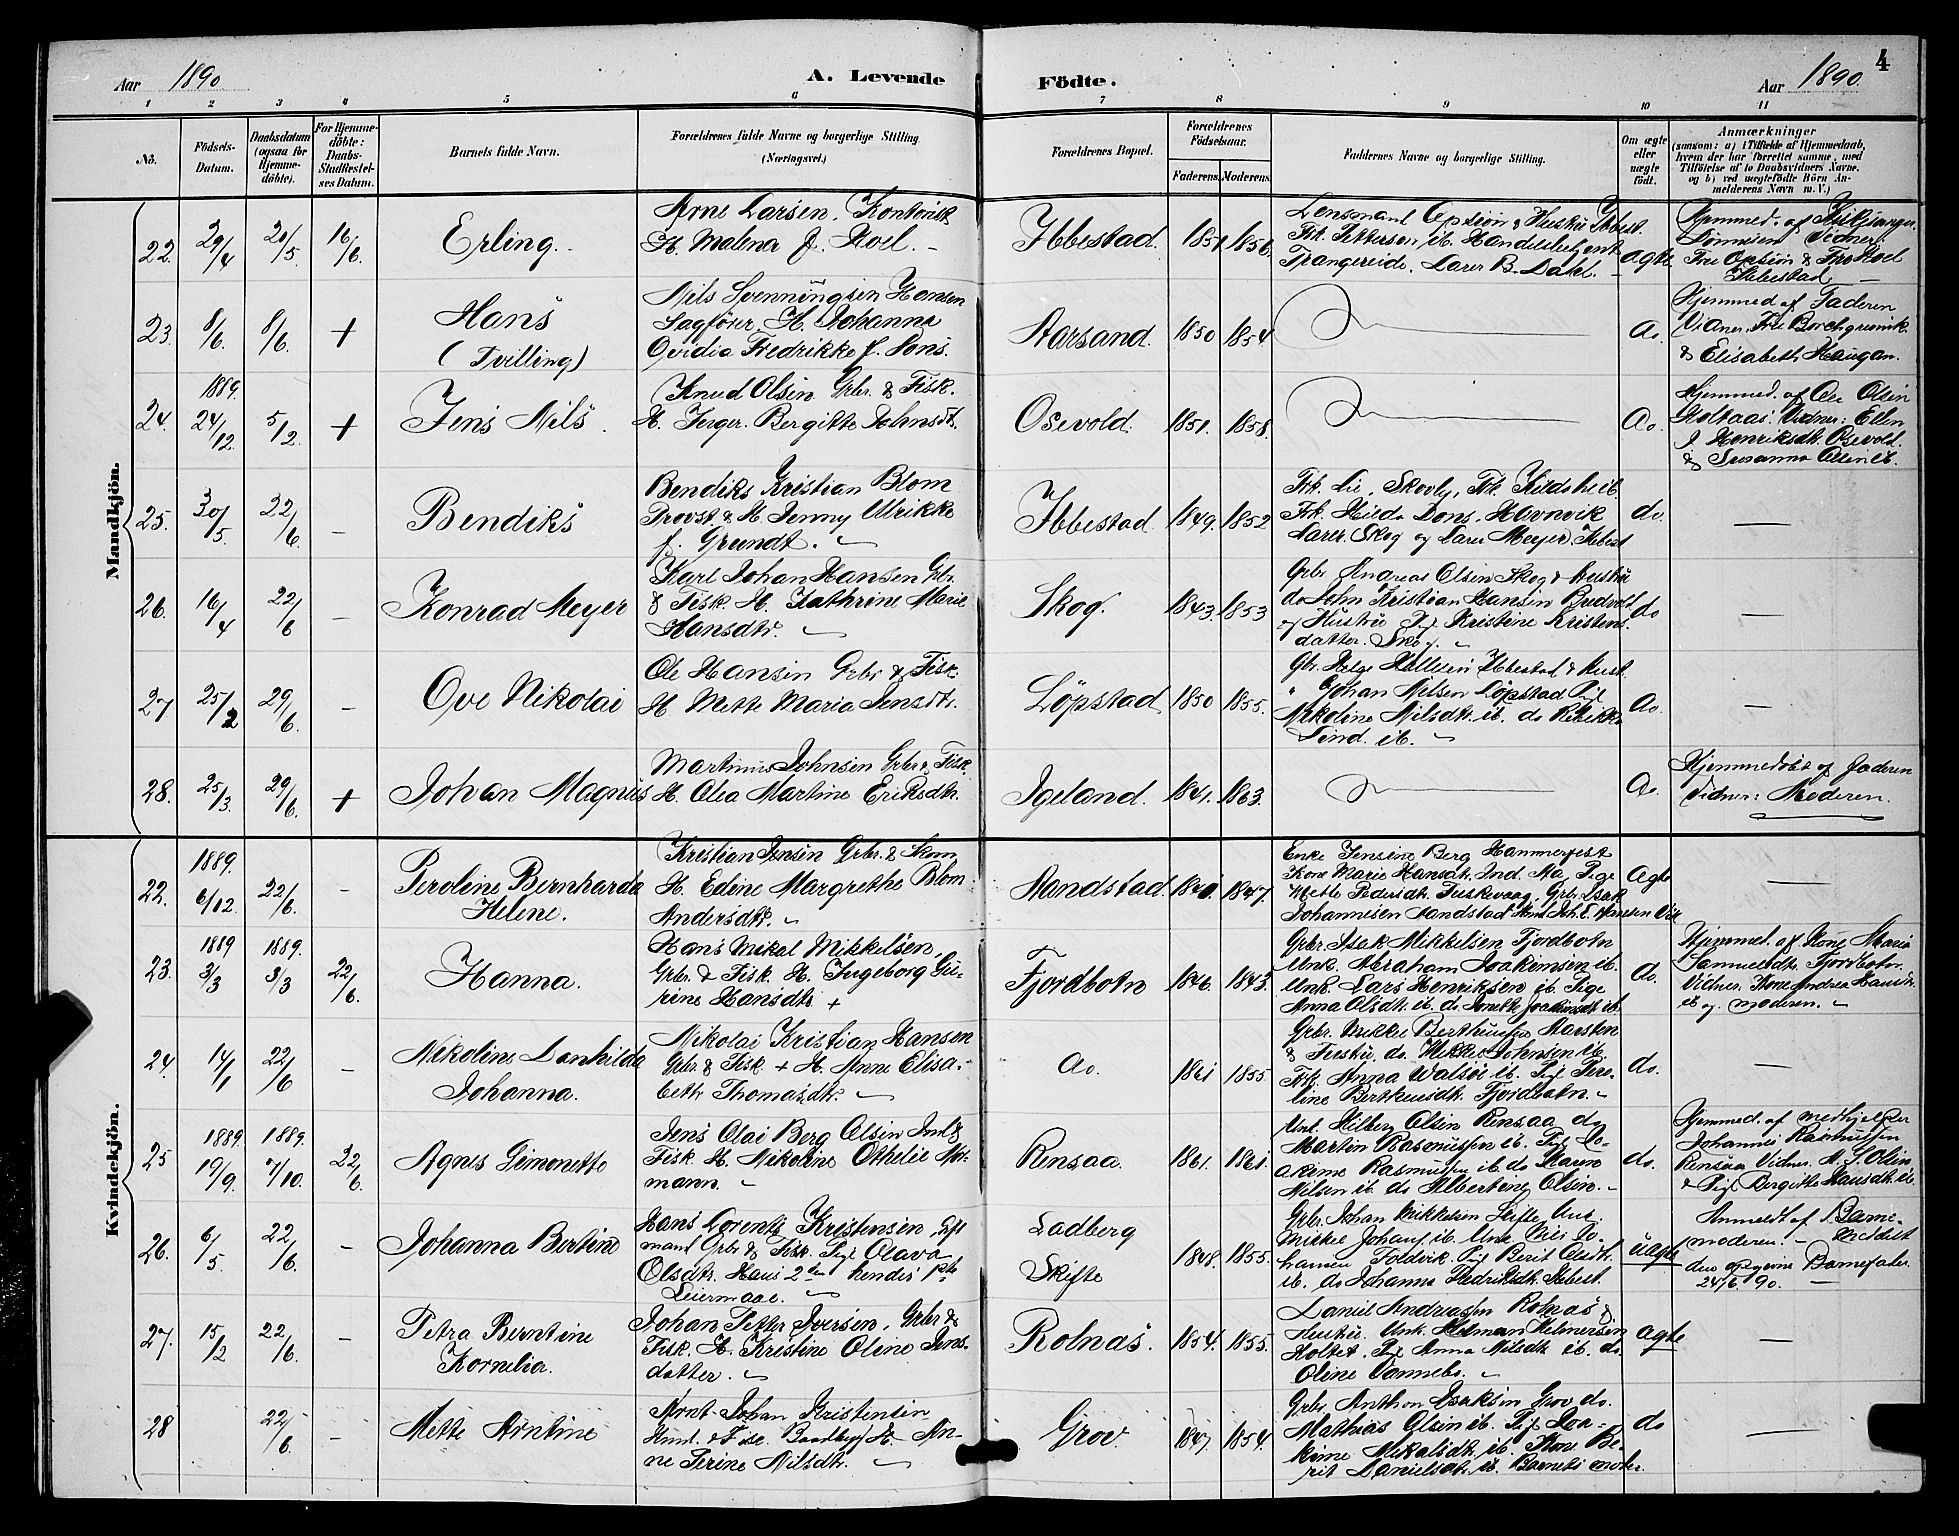 Aar 1890
A. Levende
Födte.
Aar 1890.
4
1 2 3 4 5 6 7 8 9 10 11
No.
Födsels-
Datum.
Daabsdatum
(ogsaa for
Hjemme-
döbte).
For Hjemme-
döbte:
Daabs-
Stadfæstel-
ses Datum.
Barnets fulde Navn.
Forældrenes fulde Navne og borgerlige Stilling
(Næringsvei.)
Forældrenes Bopæl.
Forældrenes
Födselsaar.
Faderens. Moderens.
Faddernes Navne og borgerlige Stilling.
Om ægte
eller
uægte
födt.
Anmærkninger
(saasom: a) i Tilfælde af Hjemmedaab,
hvem der har forrettet samme, med
Tilföielse af to Daabsvidners Navne,
og b) ved uægtefödte Börn An-
melderens Navn m. V.)
Mandkjön.
22. 29/4 20/5 16/6. Erling.
Arne Larsen, Kontorist
H. Malena f. Roel.
Ibbestad. 1851 1856
Lensmand Opsion & Hustru Ibbest.
Frk. Pettersen ib. Handelsbetjent
Trangereide. Lærer B. Dahl.
ægte
Hjemmed. af
Vidner:
Ibbestad
23. 8/6. 8/6. + Hans
(Tvilling)
Nils Svenningsen Hansen
Sagfører. H. Johanna
Ovidia Fredrikke f. Dons.
Aarsand. 1850 1854 do.
Hjemmed af Faderen
Vidner. Fru Borchgrevink
& Elisabeth Haugan.
24. 1889. 24/12. 5/2. + Jens Nils.
Knud Olsen Grbr. & Fisk.
H. Inger Bergitte Johnsdt.
Osevold. 1851. 1858. do.
Hjemmed. af Ole Olsen
Vidner: Ellen
J. Henriksdt. Osevold.
& Susanna Olsen ib.
25. 30/5. 22/6. – Bendiks
Bendiks Kristian Blom
Provst & H. Jenny Ulrikke
f. Grundt.
Ibbestad 1849. 1852
Frk. Lie, Skovly, Frk. ib
Frk. Hilda Dons, Havnvik
Lærer. Skog og Lærer Meyer. Ibbest
do.
26. 16/4 22/6 – Konrad Meyer
Karl Johan Hansen Grbr.
& Fisk. H. Kathrine Marie
Hansdtr.
Skog. 1843. 1853
Grbr Andreas Olsen Skog & Hustru
do John Kristian Hansen
og Hustru Pig. Kristine Kristens-
datter. Skog.
do
27 25/2 29/6. – Ove Nikolai
Ole Hansen Grbr & Fisk.
H Mette Maria Jensdtr.
Løpstad 1850 1855.
Gbr. Helge Ibbestad & Hust.
" Johan Nilsen Løpstad Pig.
Nikoline Nilsdtr. ib. do Rebekka
Lind. ib.
do.
28. 25/3. 29/6. + Johan Magnus
Martinus Johnsen Grbr & Fisk.
H. Olea Martine Eriksdtr.
Igeland. 1841. 1863. do.
Hjemmedøbt af Faderen
Vidner: Moderen.
Kvindekjön.
22. 1889. 6/12. 22/6. – Peroline Bernharda
Helene.
Kristian Jensen Grbr. & Skom.
H. Edine Margrethe Blom
Andersdtr.
Sandstad. 1847.
Enke Jensine Berg Hammerfest
Kone Marie Hansdt. Ind. Aa Pige
Mette Pedersdt. Grbr. Isak
Johannesen Sandstad
ægte
23. 1889 3/3 1889. 3/3 22/6. Hanna.
Hans Mikal Mikkelsen,
Grbr. & Fisk H. Ingeborg Gu-
rine Hansdtr +
Fjordbotn 1846. 1843.
Grbr. Isak Mikkelsen Fjordbotn
Unk. Abraham Joakimsen ib.
Unk. Lars Henriksen ib. Pige
Anna Olsdt. ib. do. Joakimsdt. ib.
do.
Hjemmed. af Kone Maria
Samuelsdtr. Fjordbotn.
Vidner. Kone Andrea
ib og moderen.
24. 14/1 22/6 – Nikoline Danhilda
Johanna.
Nikolai Kristian Hansen
Grbr. & Fisk + H. Anne Elisa-
beth Thomasdtr.
do. 1861 1855
Grbr. Mikkel
& Hustru. do. Johnsen ib.
Frk. Anna ib. Pige Pero-
line Fjordbotn.
do.
25 1889. 19/9. 1889. 7/10. 22/6. Agnes Simonette
Jens Olai Berg Olsen Ind &
Fisk H. Nikoline Othelie Nor-
mann.
Rensaa. 1861. 1861.
Unk. Hilberg Olsen Rensaa do
Marton Rasmussen ib. Pige Jo-
akime Rasmussen ib. do Karen
Nilsen ib. do Albertine Olsen.
do.
Hjemmed. af medhjelper
Johannes Rasmussen
Rensaa Vidner. M. S. Olsen
& Pige Bergitte Hansdt. ib.
26. 6/5. 22/6. – Johanna Bertine
Hans Lorents Kristensen, Gift
mand Grbr & Fisk. Pige Olava
Olsdtr. Hans 2det hendes 1ste
Leiermaal.
Ladberg
Skifte
1848. 1855.
Grbr. Johan Mikkelsen Skifte Unk.
Mikkel Johans. ib. Unk. Nils Jo-
hansen Foldvik. Pig Berit Olsdt.
ib. do Johanna Fredriksdt. Ibbest.
uægte
Anmeldt af Barne-
moderen. – Meddelt
den opgivne Barnefader
24/6 90.
27. 15/2 22/6. – Petra Berntine
Kornelia.
Johan Petter Iversen, Grbr &
Fisk. H. Kristine Oline Jens-
datter.
Rolnæs. 1854. 1855.
Daniel Andreassen Rolnæs &
Hustru. Unk. Helmersen
Holtet. Pige Anna Nilsdt. ib. do.
Oline
ægte
28 22/6. – Mette Arntine
Arnt Johan Kristensen
H. An-
ne Perine Nilsdt.
Grov. 1847. 1854.
Grbr. Anthon Isaksen Grov do.
Mathias Olsen ib. Pige Joa-
kime Mikalsdt. ib. Kone Be-
rit Danielsdt. ib. Barnets moder.
do